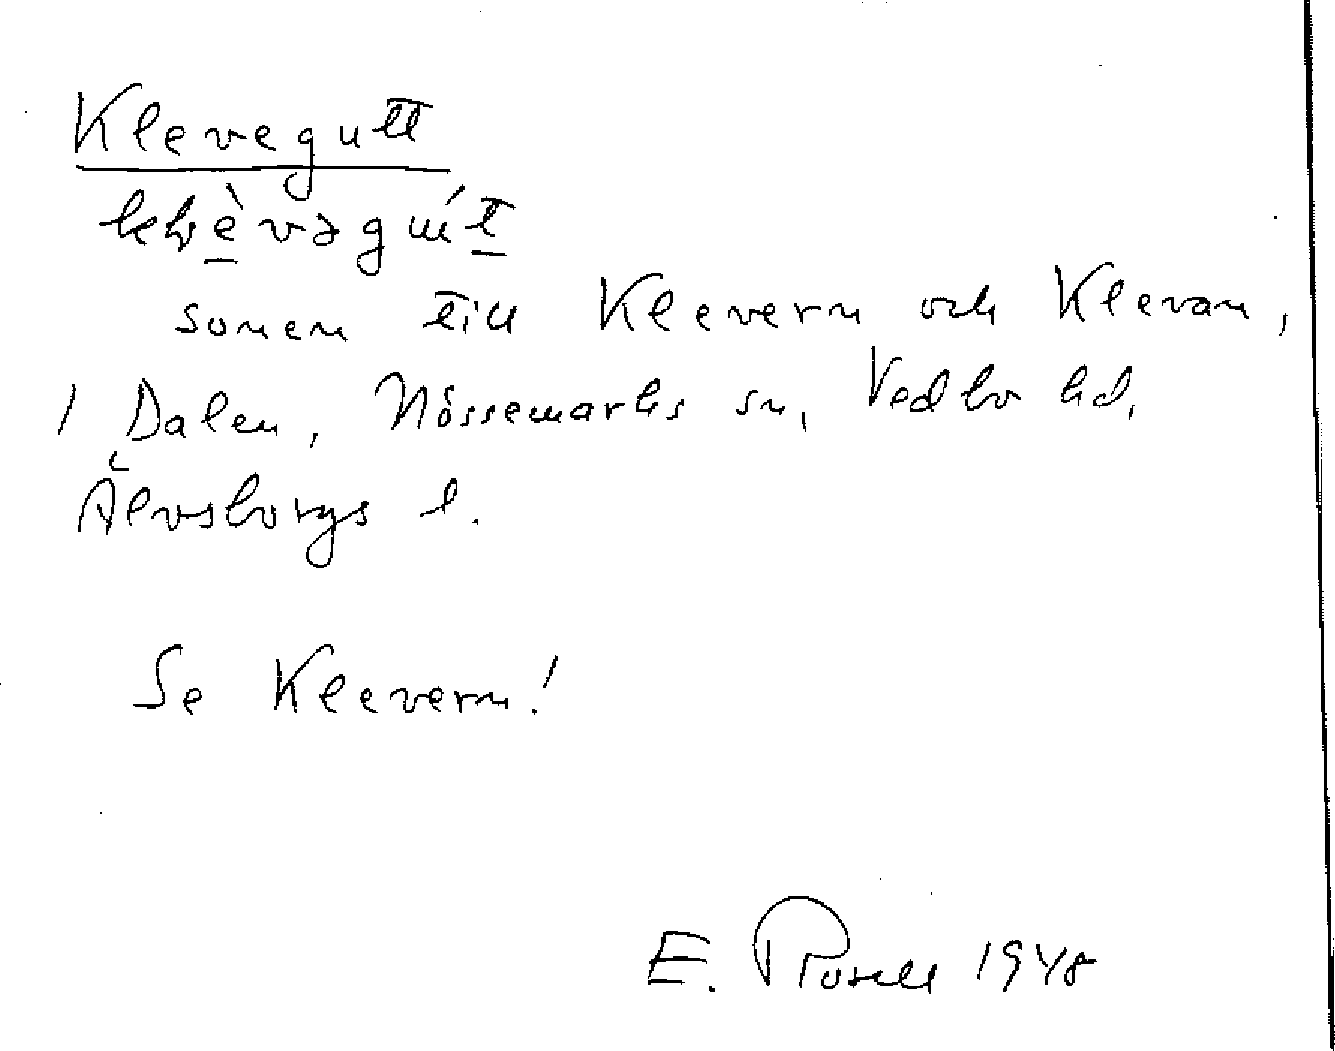 Klevegutt
klèvəgút
sonen till Klevern och Klevan,
1 Dalen, Nössemarks sn, Vedbo hd,
Älvsborgs l.
Se Klevern!
E. Rosell 1948